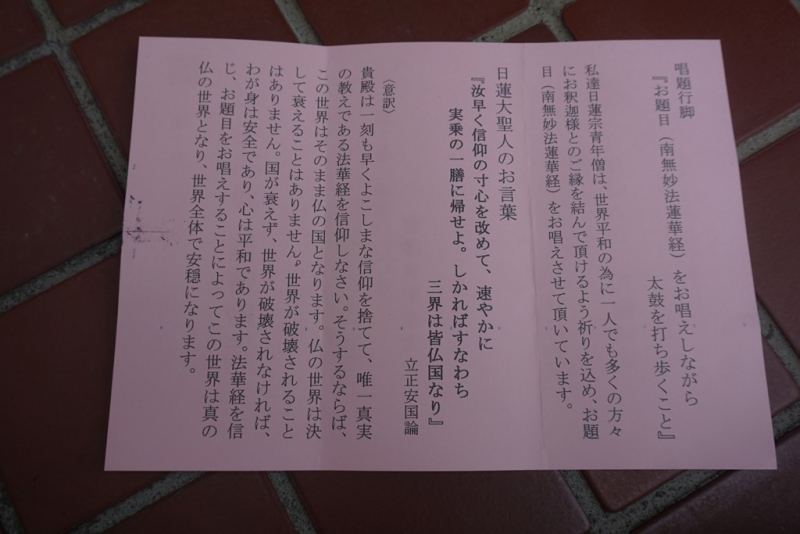 唱題行脚
『お題目(南無妙法蓮華経)をお唱えしながら
太鼓を打ち歩くこと』
私達日蓮宗青年僧は、世界平和の為に一人でも多くの方々
にお釈迦様とのご縁を結んで頂けるよう祈りを込め、お題
目(南無妙法蓮華経)をお唱えさせて頂いています。
日蓮大聖人のお言葉
『汝早く信仰の寸心を改めて、速やかに
実乗の一膳に帰せよ。しかればすなわち
三界は皆仏国なり』
立正安国論
〈意訳〉
貴殿は一刻も早くよこしまな信仰を捨てて、唯一真実
の教えである法華経を信仰しなさい。そうするならば、
この世界はそのまま仏の国となります。仏の世界は決
して衰えることはありません。世界が破壊されること
はありません。国が衰えず、世界が破壊されなければ、
わが身は安全であり、心は平和であります。法華経を信
じ、お題目をお唱えすることによってこの世界は真の
仏の世界となり、世界全体で安穏になります。